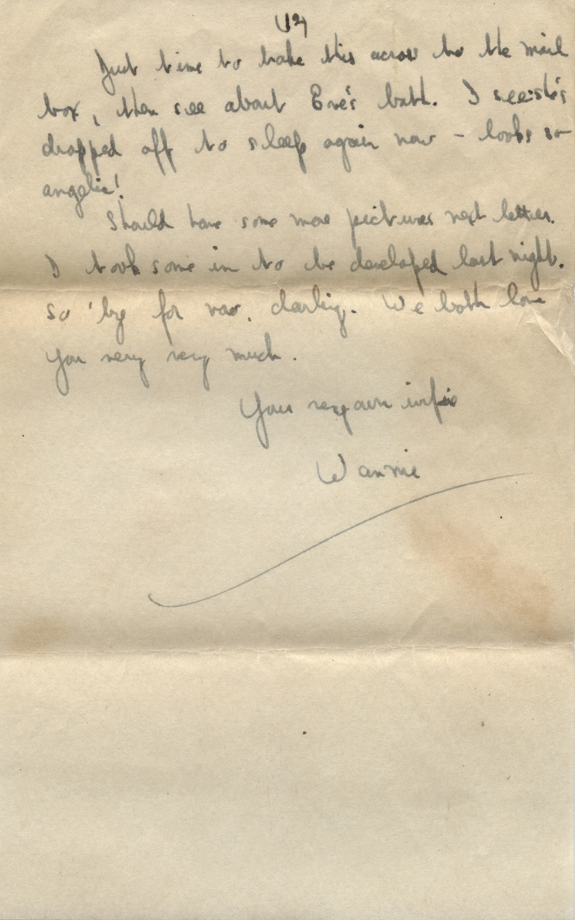 (12)
Just time to take this across to the mail
box, then see about Eve's bath. I see she's
dropped off to sleep again now - looks so
angelic!
Should have some more pictures next letter.
I took some in to be developed last night.
So 'bye for now, darling. We both love
you very very much.
Your very own wifie
Wannie